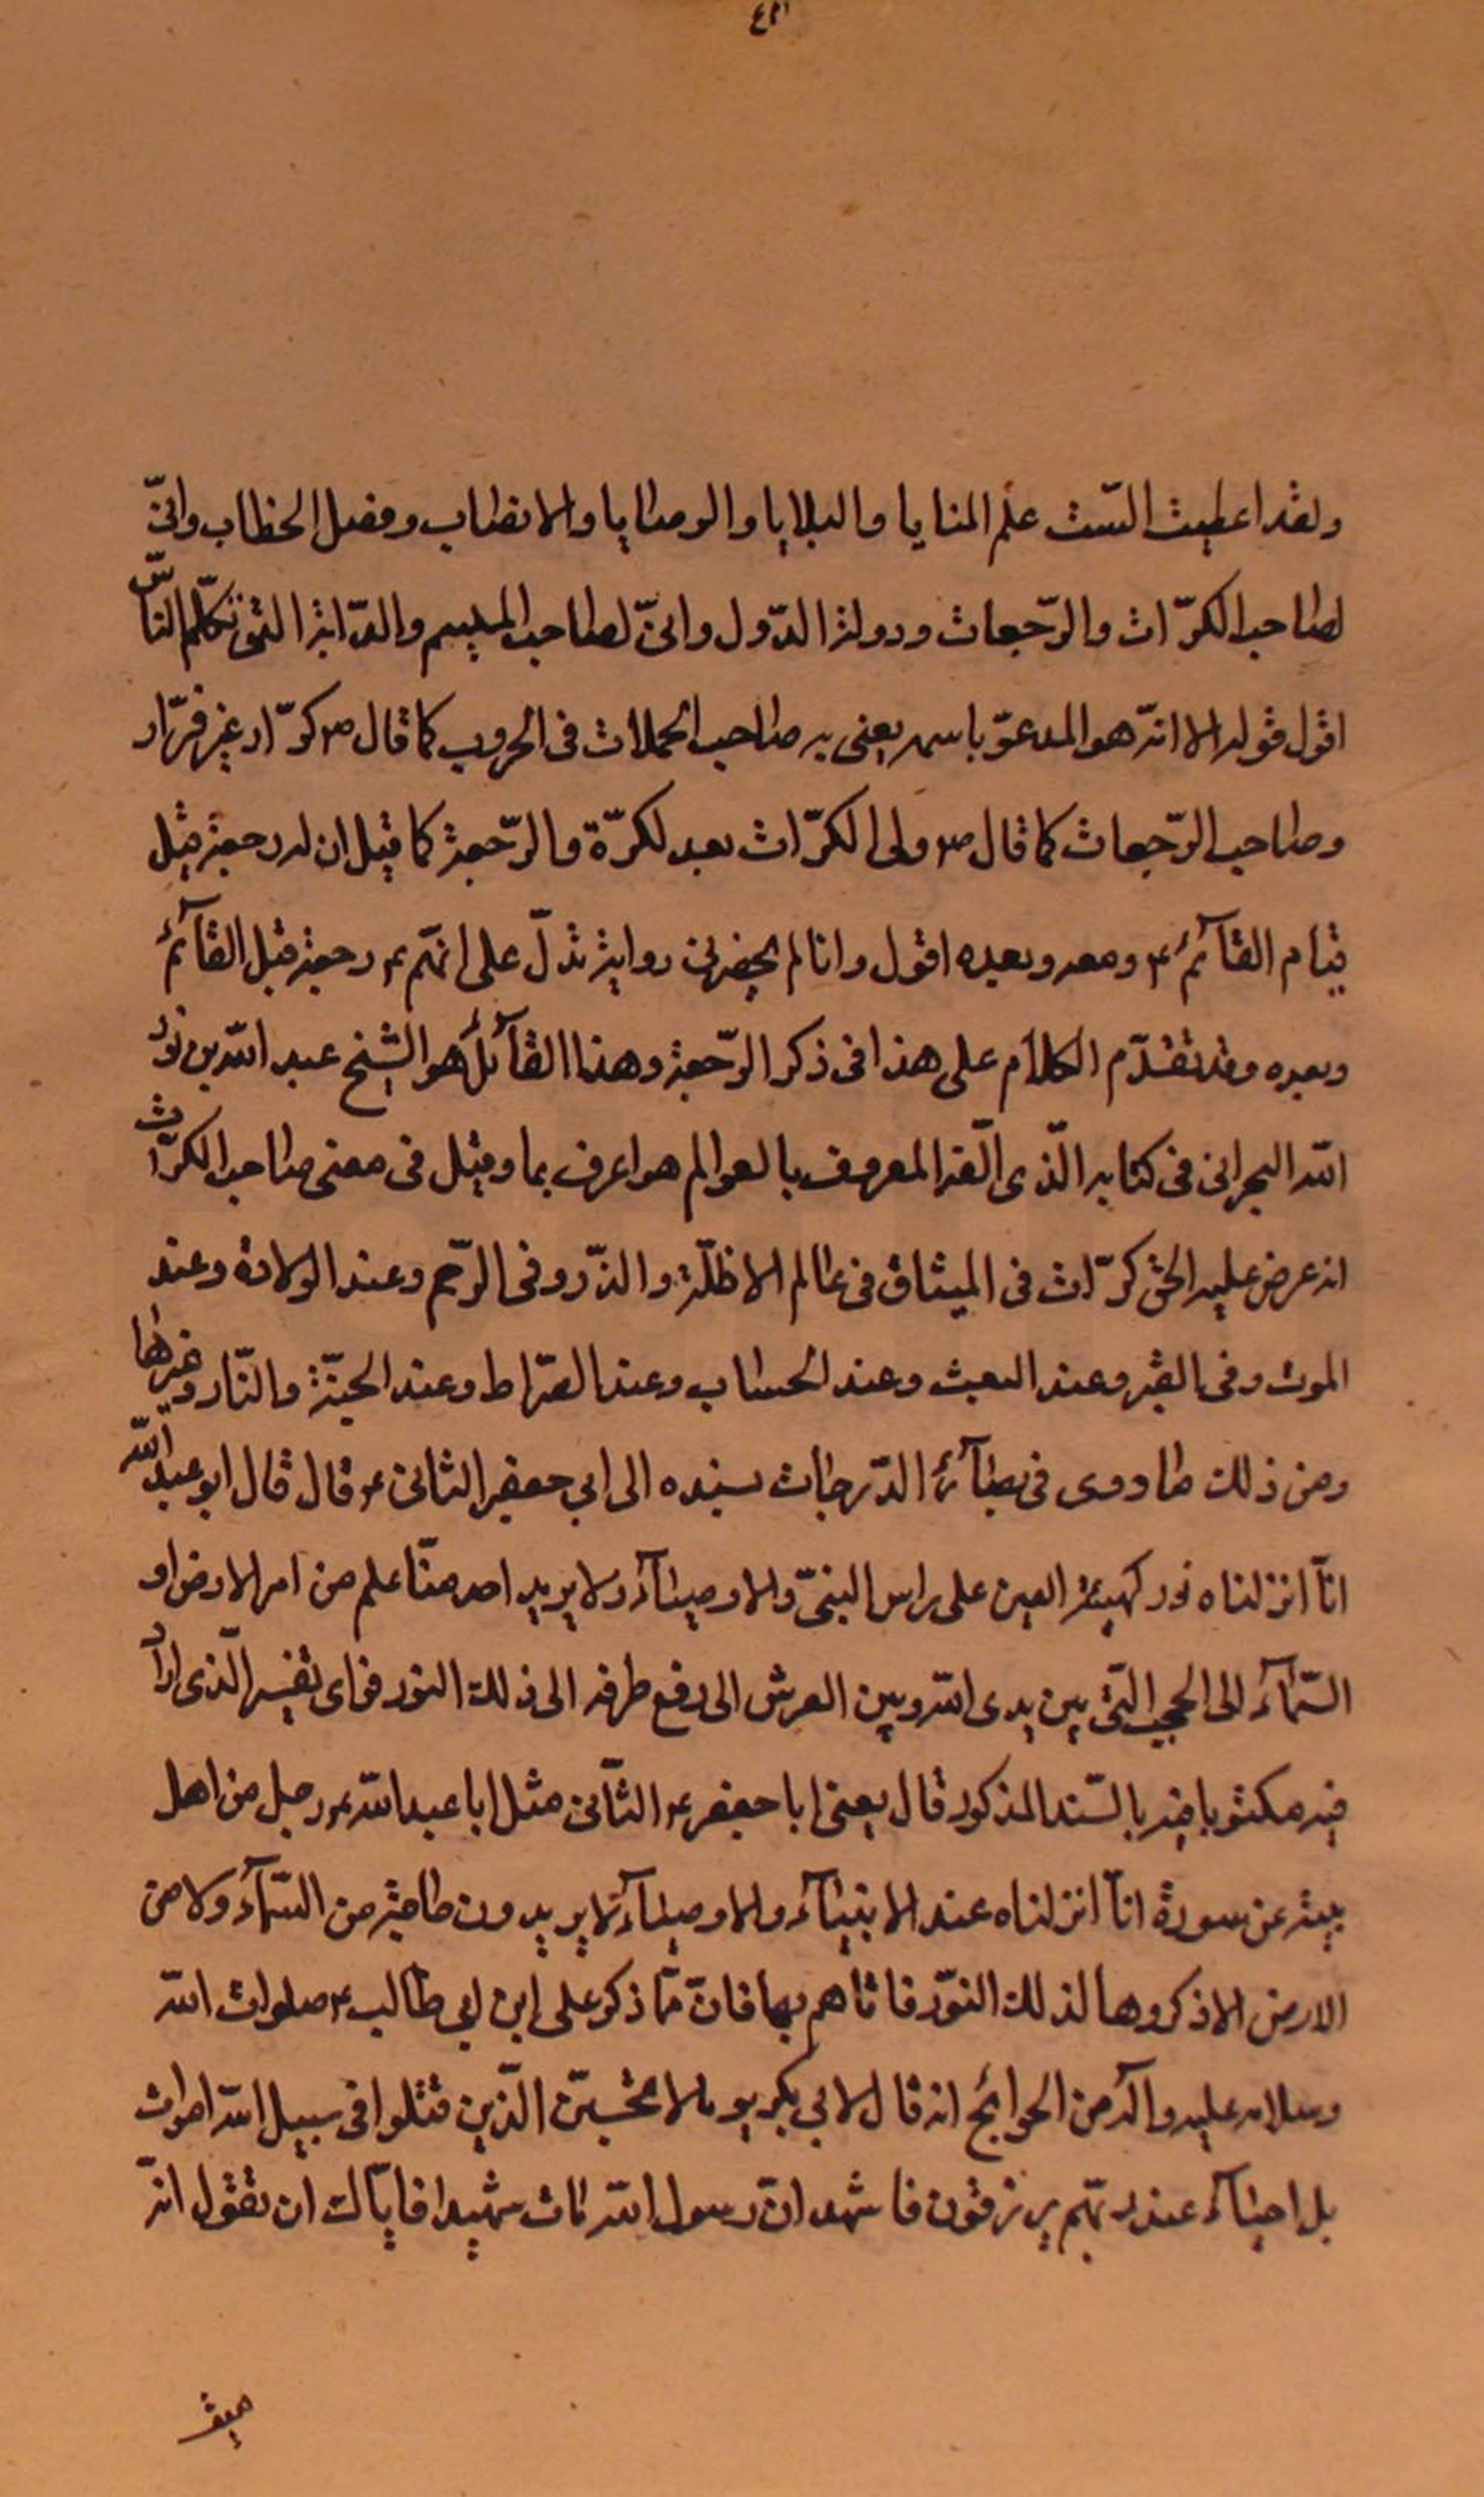 ولقد اعطيت الستّ علم المنايا والبلايا والوصايا والانصاب وفصل الخطاب وانّى
لصاحب الكرّات والرّجعات ودولة الدّول وانّى لصاحب الميسم والدّابة التى تكلّم النّاس
اقول قوله الا انّه هو المدعوّ باسمه يعنى به صاحب الحملات فى الحروب كما قال ص كرّار غير فرّار
وصاحب الرّجعات كما قال ص ولى الكرّات بعد لكرّة والرّجعة كما قيل ان له رجعة قبل
قيام القآئم ع ومعه وبعده اقول وانا لم يحضرنى رواية تدلّ على انّهم ع رجعة قبل القآئم
وبعده وقد تقدّم الكلام على هذا فى ذكر الرّجعة وهذا القآئل هو الشيخ عبد الله بن نور
الله البحرانى فى كتابه الّذى الّفه المعروف بالعوالم هو اعرف بما وقيل فى معنى صاحب الكرّات
انه عرض عليه الحق كرّات فى الميثاق فى عالم الاظلّة والذّر وفى الرّحم وعند الولادة وعند
الموت وفى القبر وعند البعث وعند الحساب وعند الصّراط وعند الجنّة والنّار وغيرها
ومن ذلك ما روى فى بصآئر الدّرجات بسنده الى ابي جعفر الثانى ع قال قال ابو عبد الله
انّا انزلناه نور كهيئة العين على راس النبىّ والاوصيآء ولا يريد احد منّا علم من امر الارض او
السّمآء الى الحجب التّى بين يدى الله وبين العرش الى رفع طرفه الى ذلك النور فراى تفسير الّذى اراد
فيه مكتوبا فيه بالسّند المذكور قال يعنى ابا جعفر ع الثّانى مثل ابا عبد الله ع رجل من اهل
بيته عن سورة انّا انزلناه عند الانبيآء والاوصيآء لا يريدون حاجة من السّمآء ولا من
الارض الا ذكروها لذلك النّور فاتاهم بها فانّ ممّا ذكر على ابن ابي طالب ع صلوات الله
وسلامه عليه وآله من الحوائج انه قال لابي بكر يوما لا تحسبّن الّذين قتلوا فى سبيل الله امواث
بل احيآء عند ربّهم يرزقون فاشهد انّ رسول الله مات شهيدا فايّاك ان تقول انّه
ميّت